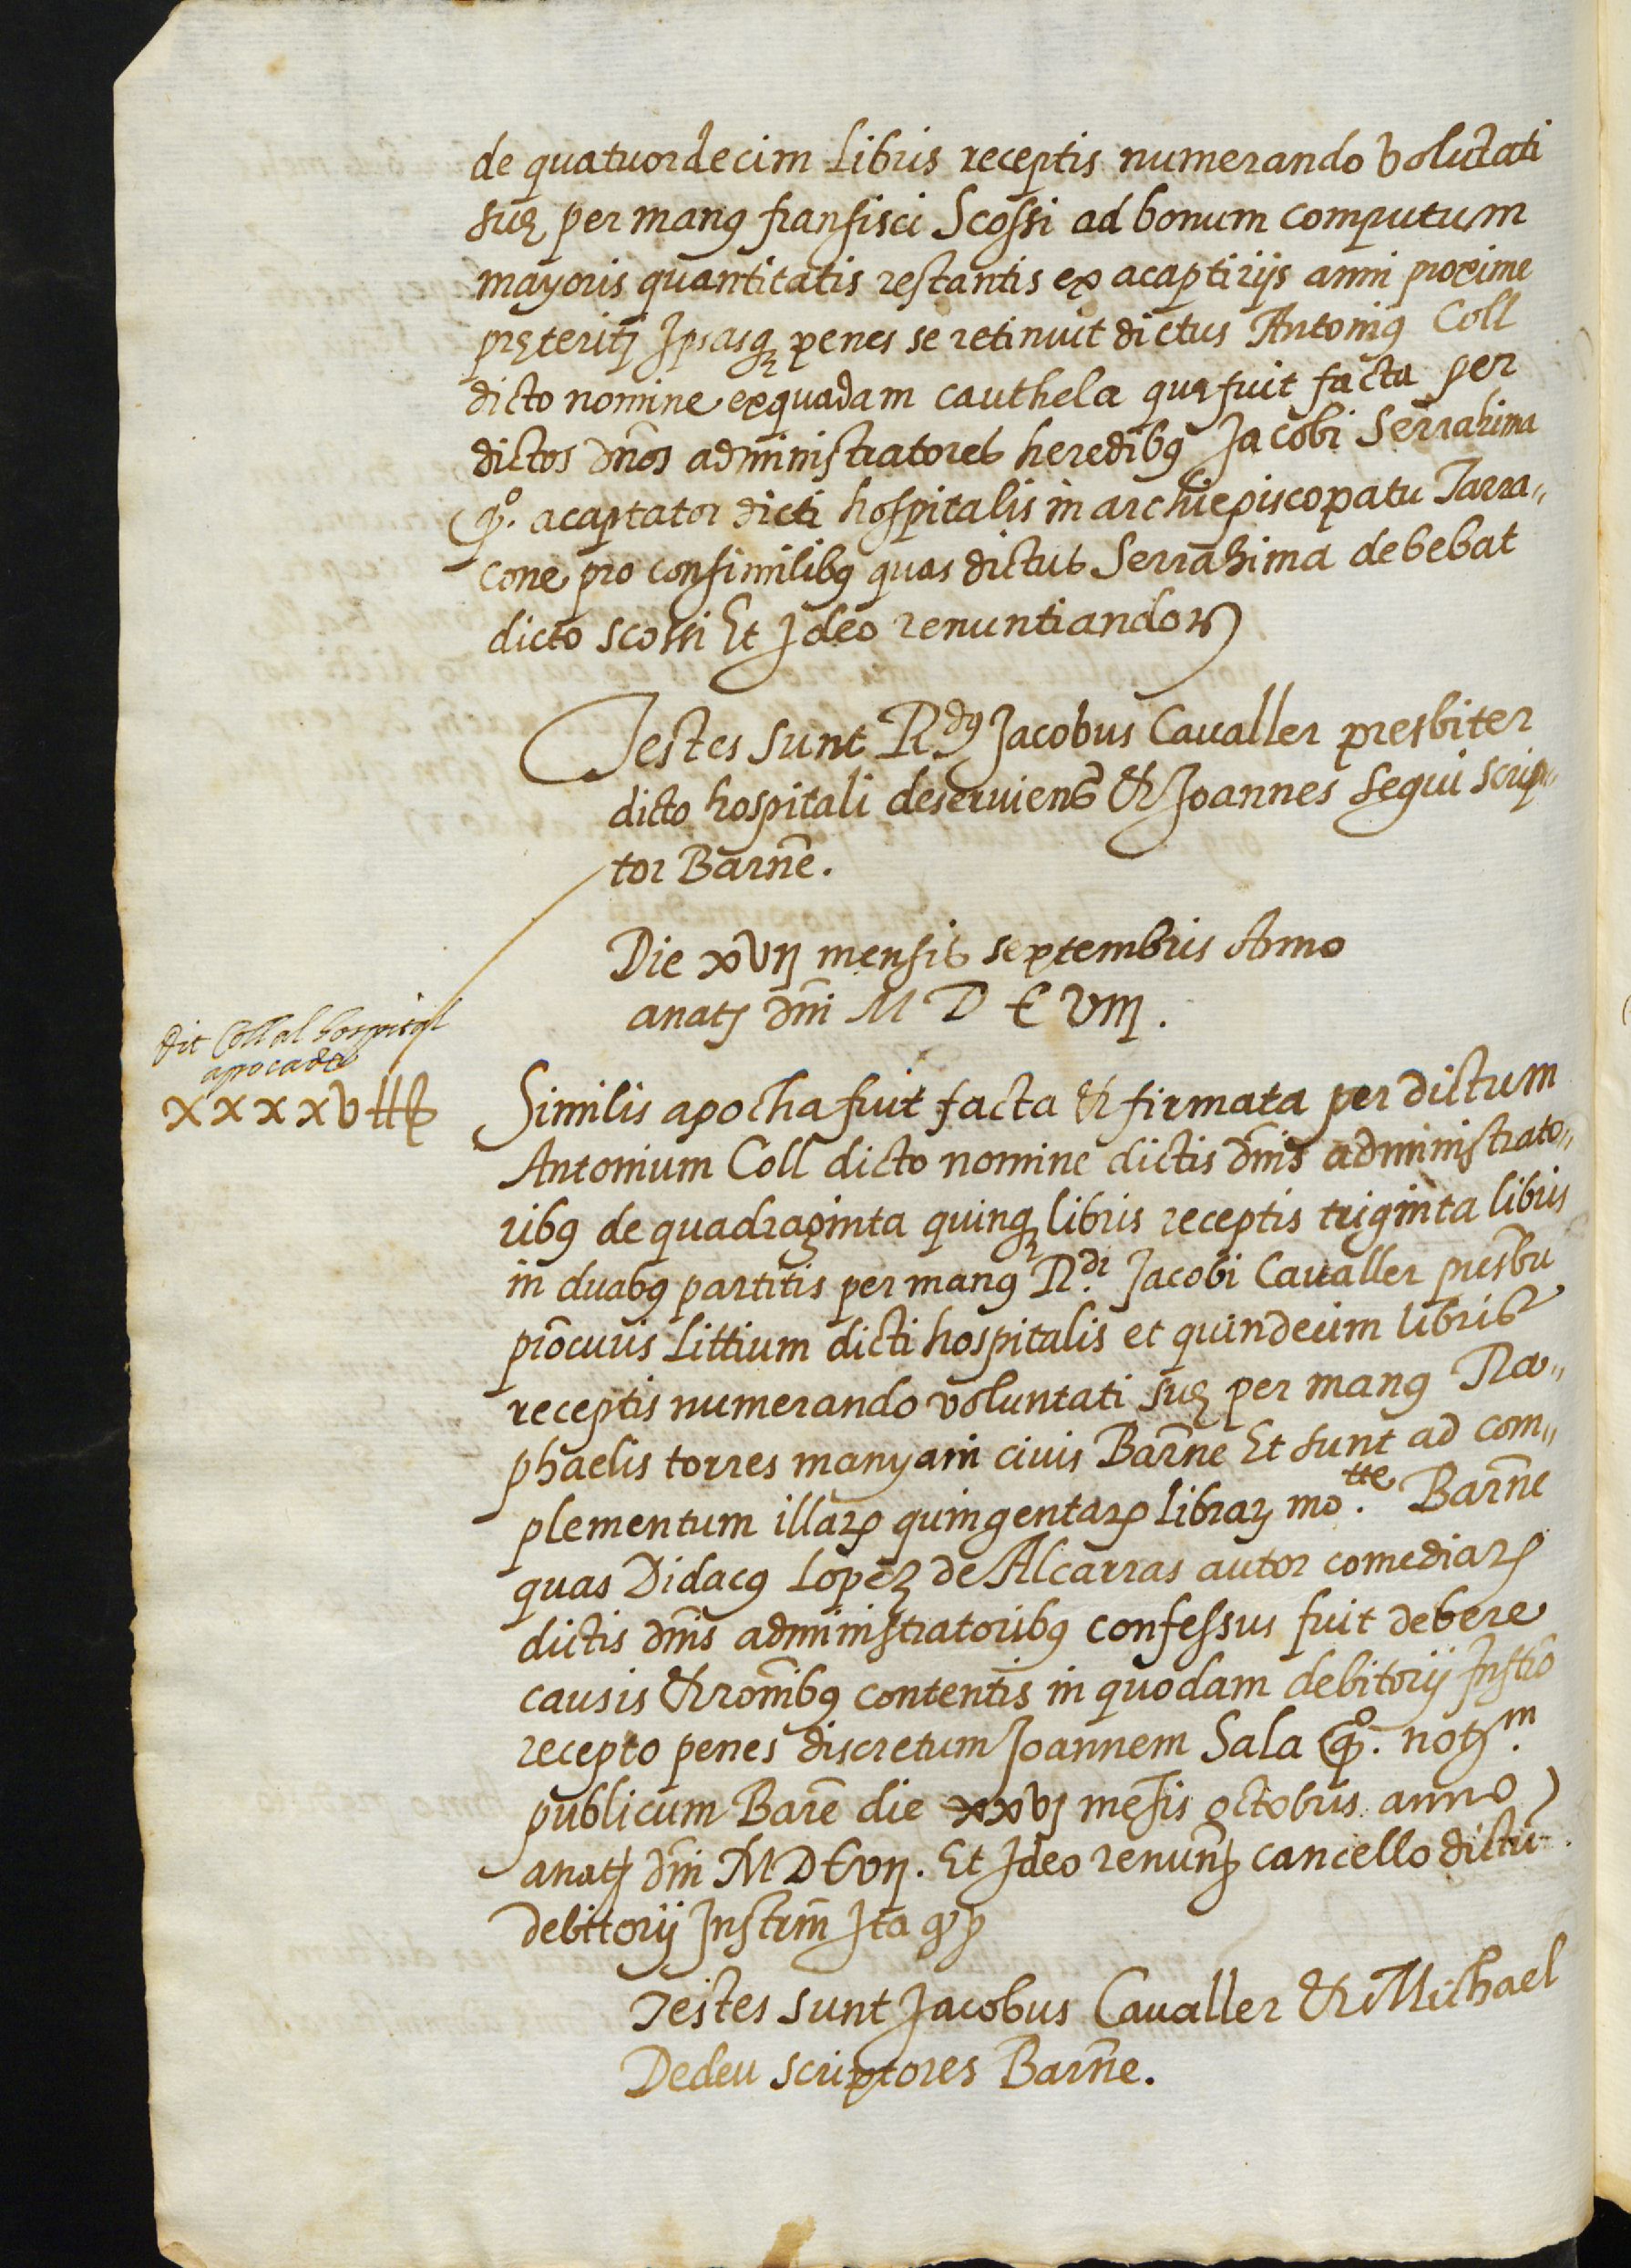 de quatuordecim Libris receptis numerando volutati
suę per manꝰ fransisci Scossi ad bonum computum
mayoris quantitatis restantis ex acaptirijs anni proxime
pręteritj Ipsasqꝫ penes se retinuit dictus Antoniꝰ Coll
dicto nomine exquadam cauthela quę fuit facta per
dictos dños administratores heredibꝰ Jacobi Serrahima
qº. acaptator dicti hospitalis in archiepiscopatu Tarra„
cone pro consimilibꝰ quas dictus Serrahima debebat
dicto scossi Et Jdeo renuntiando
Testes sunt Rdꝰ Jacobus Caualler presbiter
dicto hospitali deseruiens & Joannes Segui scrip„
tor Barñe.
Die xvij mensis septembris Anno
anatj dñi M D C viij.
dit Coll al hospital
apoca de
xxxxv ℔
Similis apocha fuit facta & firmata per dictum
Antonium Coll dicto nomine dictis dñis administrato„
ribꝰ de quadraginta quinqꝫ libris receptis triginta libris
in duabꝰ partitis per manꝰ Rdi. Jacobi Caualler presbri
prõcuris Littium dicti hospitalis et quindecim libris
receptis numerando voluntati suę per manꝰ Ra„
phaelis torres manyani ciuis Barñe Et sunt ad com„
plementum illarꝝ quingentarꝝ Librarꝝ motte. Barñe
quas Didacꝰ Lopez de Alcarras autor comediarꝝ
dictis dñis administratoribꝰ confessus fuit debere
causis & rõnibꝰ contentis in quodam debitorij Instrõ
recepto penes discretum Joannem Sala qº. notm.
publicum Barẽ die xxvj mẽsis octobris anno
anatj dñi M D C vij. Et Jdeo renunꝭ cancello dictũ
debitorij Instrm̃ Jta qꝫ
Testes sunt Jacobus Caualler & Michael
Dedeu scriptores Barñe.